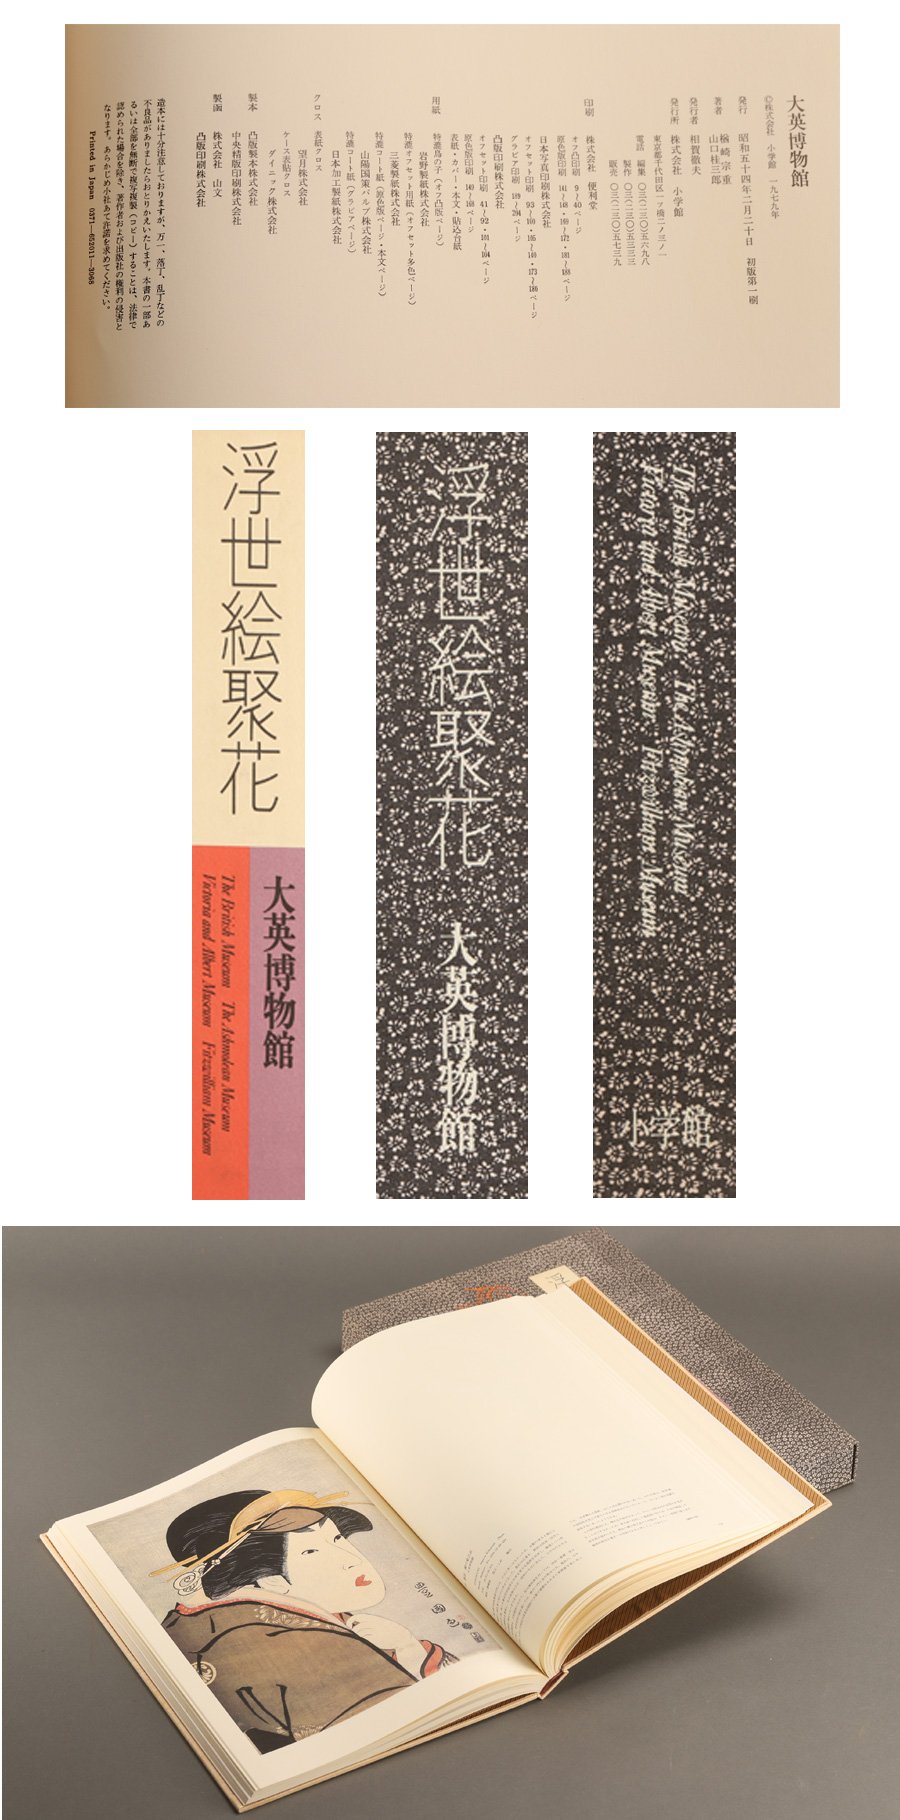 大英博物館
©株式会社 小学館 一九七九年
発行 昭和五十四年二月二十日 初版第一刷
著者 楢崎宗重
山口桂三郎
発行者 相賀徹夫
発行所 株式会社 小学館
東京都千代田区一ツ橋二ノ三ノ一
電話 編集 〇三(二三〇)五六九八
製作 〇三(二三〇)五三三三
販売 〇三(二三〇)五七三九
印刷 株式会社 便利堂
オフ凸印刷 9〜40ページ
原色版印刷 141〜148・169〜172・181〜188ページ
日本写真印刷株式会社
オフセット印刷 93〜100・105〜140・173〜180ページ
グラビア印刷 189〜204ページ
凸版印刷株式会社
オフセット印刷 41〜92・101〜104ページ
原色版印刷 149〜168ページ
表紙・カバー・本文・貼込台紙
用紙 特漉鳥の子(オフ凸版ページ)
岩野製紙株式会社
特漉オフセット用紙(オフセット多色ページ)
三菱製紙株式会社
特漉コート紙(原色版ページ・本文ページ)
山陽国策パルプ株式会社
特漉コート紙(グラビアページ)
日本加工製紙株式会社
クロス 表紙クロス
望月株式会社
ケース表貼クロス
ダイニック株式会社
製本 凸版製本株式会社
中央精版印刷株式会社
製函 株式会社 山文
凸版印刷株式会社
造本には十分注意しておりますが、万一、落丁、乱丁などの
不良品がありましたらおとりかえいたします。本書の一部あ
るいは全部を無断で複写複製(コピー)することは、法律で
認められた場合を除き、著作者および出版社の権利の侵害と
なります。あらかじめ小社あて許諾を求めてください。
Printed in Japan 0371—652011—3068
浮世絵聚花
大英博物館
The British Museum The Ashmolean Museum
Victoria and Albert Museum Fitzwilliam Museum
浮世絵聚花
大英博物館
The British Museum The Ashmolean Museum
Victoria and Albert Museum Fitzwilliam Museum
小学館